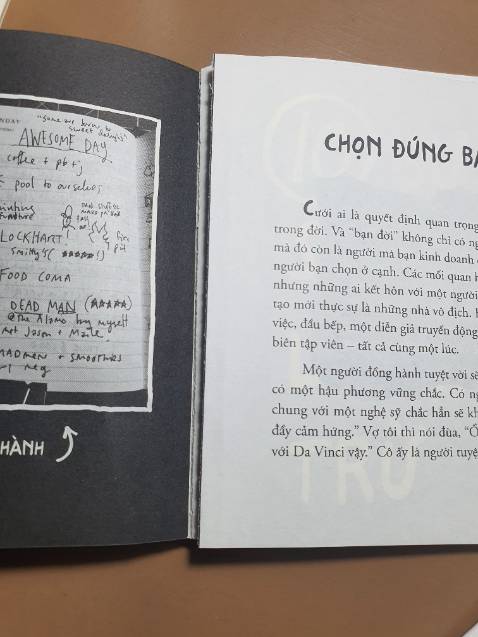 "some are born to
sweet delight"
AWESOME DAY
coffee + pb + j
pool to ourselves
LOCKHART!
Smitty's (★★★★★!)
FOOD COMA
DEAD MAN (★★★★★)
@ The Alamo by myself
Met Jason + Maite
MADMEN + SMOOTHIES
HÀNH
CHỌN ĐÚNG BẠ
Cưới ai là quyết định quan trọng
trong đời. Và “bạn đời” không chỉ có ng
mà đó còn là người mà bạn kinh doanh c
người bạn chọn ở cạnh. Các mối quan h
nhưng những ai kết hôn với một người
tạo mới thực sự là những nhà vô địch. H
việc, đầu bếp, một diễn giả truyền động
biên tập viên – tất cả cùng một lúc.
Một người đồng hành tuyệt vời sẽ
có một hậu phương vững chắc. Có ng
chung với một nghệ sỹ chắc hẳn sẽ kh
đầy cảm hứng.” Vợ tôi thì nói đùa, “Ố
với Da Vinci vậy.” Cô ấy là người tuyệ